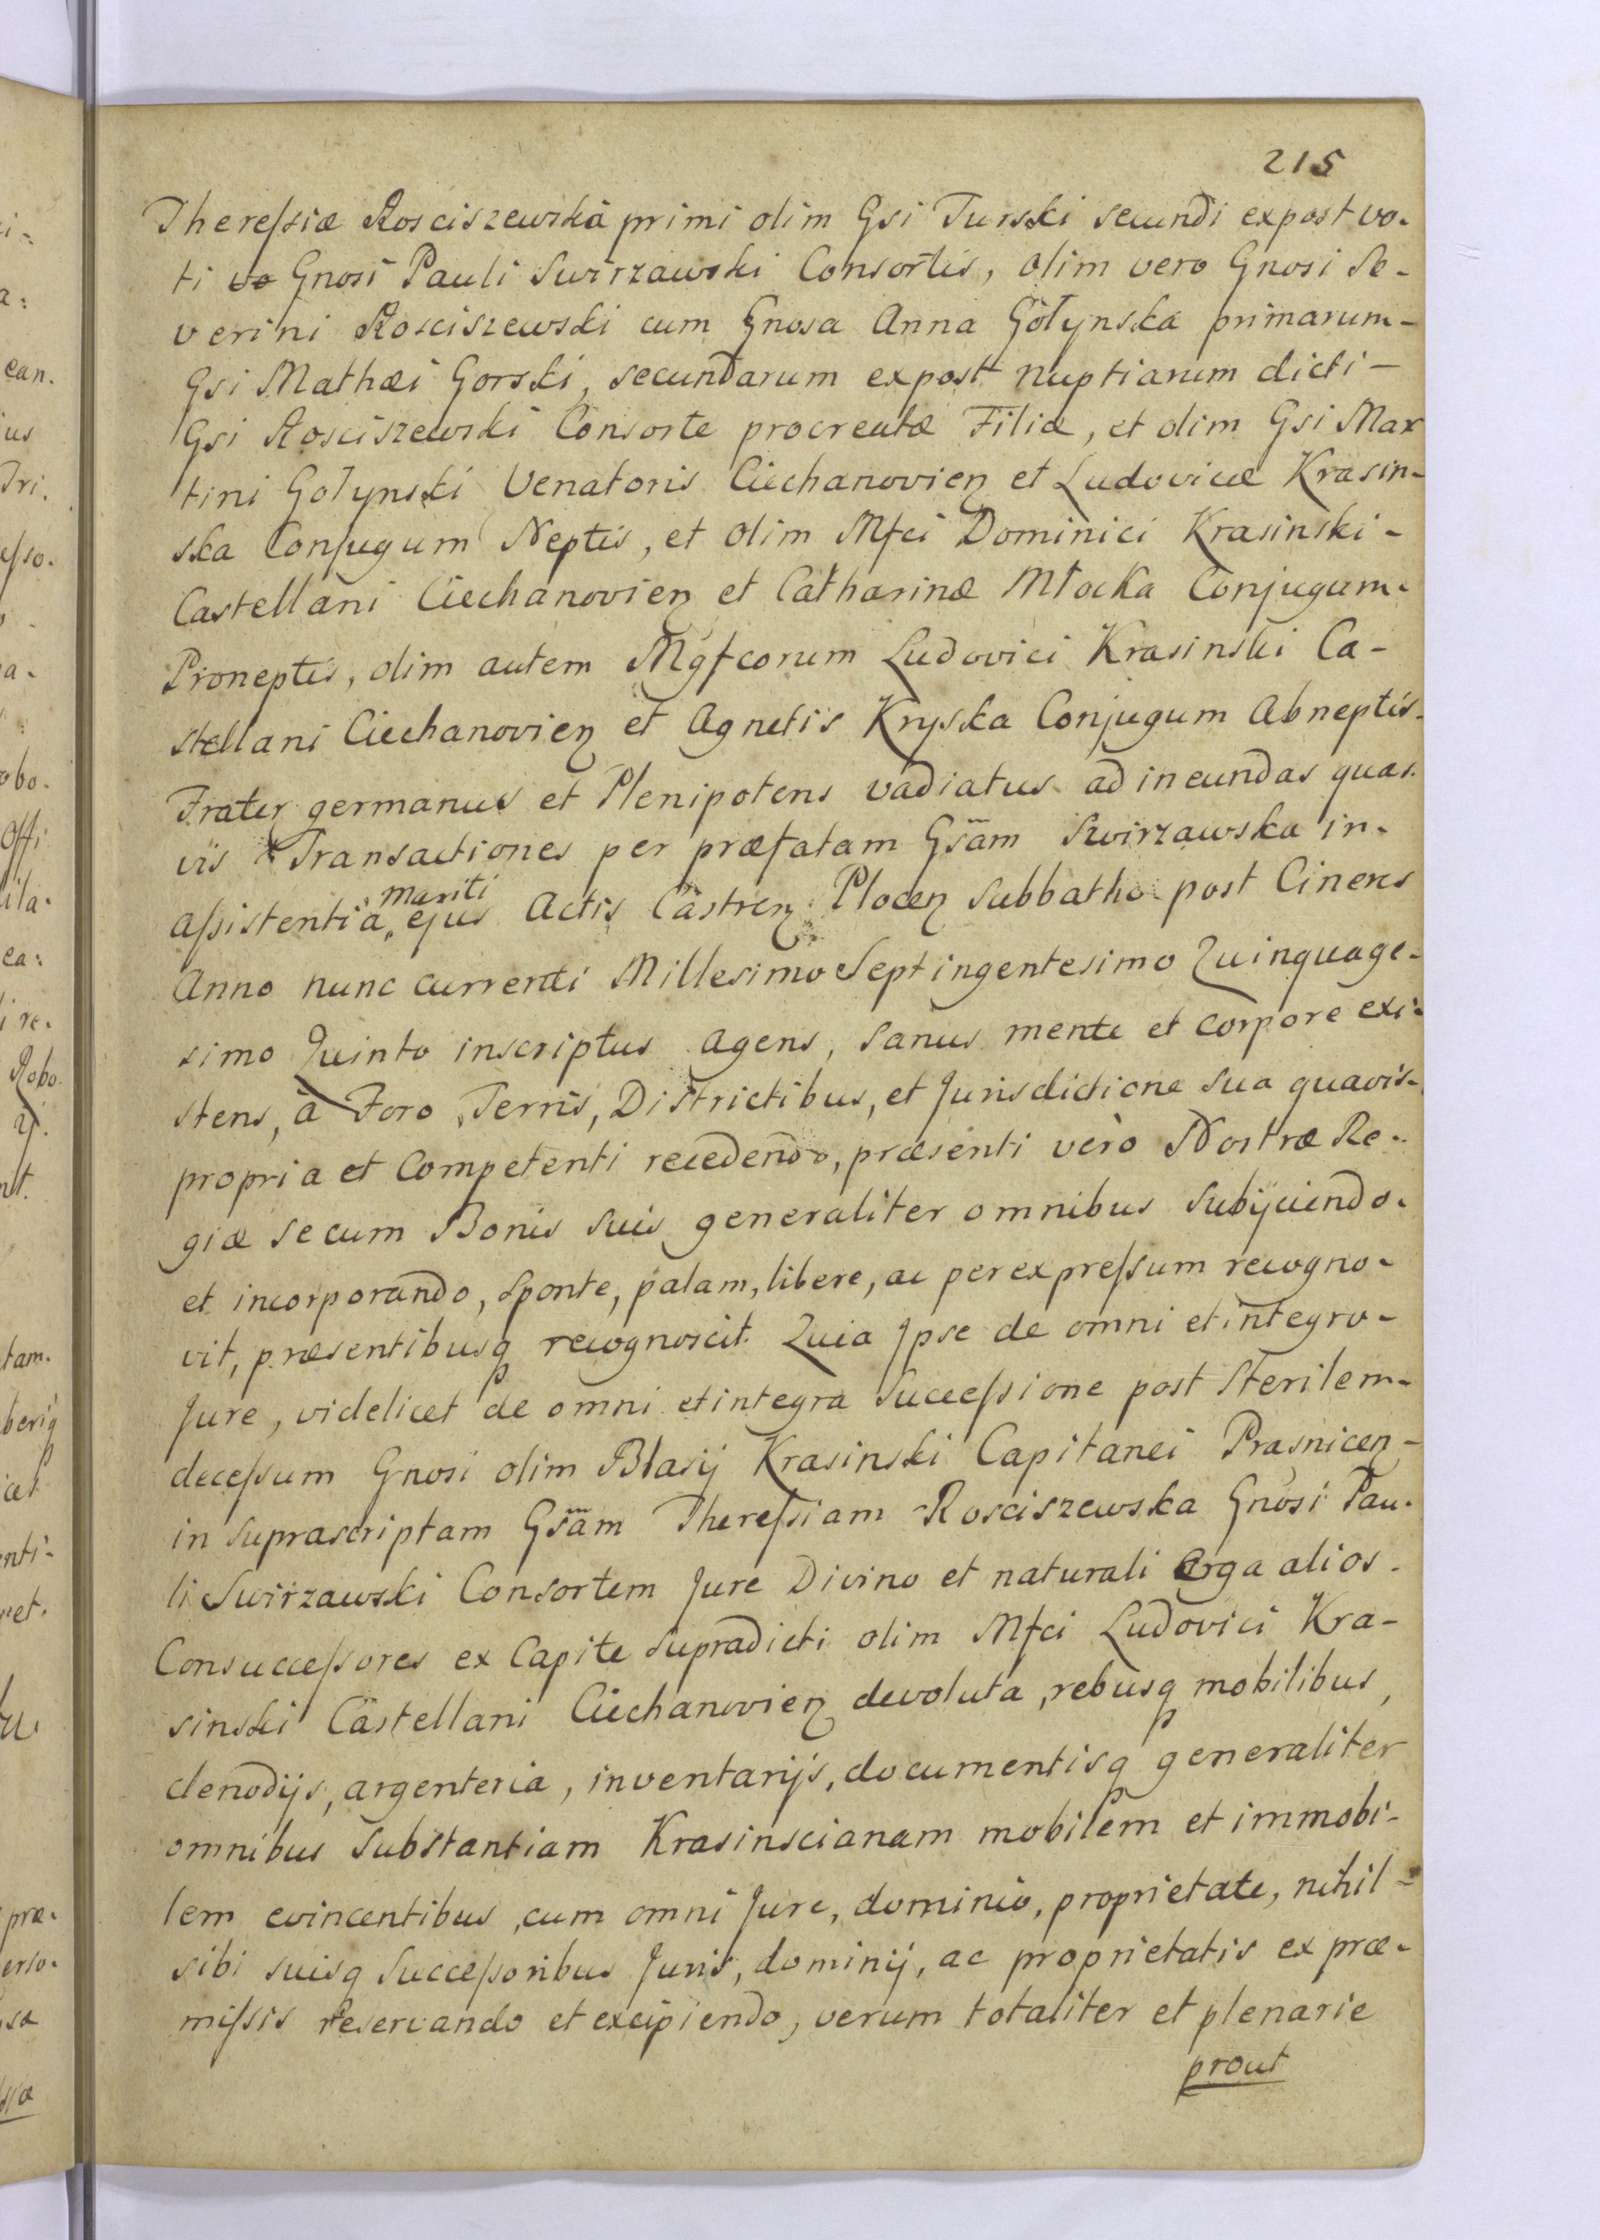 215
Theresiæ Rosciszewska primi olim Gsi Turski secundi expost vo-
ti Gnosi Pauli Swirzawski Consortis, olim vero Gnosi Se-
verini Rosciszewski cum Gnosa Anna Gołynska primarum-
Gsi Mathæi Gorski, secundarum expost nuptiarum dicti-
Gsi Rosciszewski Consorte procreatæ Filiæ, et olim Gsi Mar
tini Gołynski Venatoris Ciechanovien et Ludovicæ Krasin-
ska Conjugum Neptis, et olim Mfci Dominici Krasinski-
Castellani Ciechanovien et Catharinæ Młocka Conjugum-
Proneptis, olim autem Mgfcorum Ludovici Krasinski Ca-
stellani Ciechanovien et Agnetis Kryska Conjugum Abneptis-
Frater germanus et Plenipotens vadiatus ad ineundas quas-
vis Transactiones per præfatam Gsam Swirzawska in-
assistentia mariti ejus Actis Castren Plocen Sabbatho post Cineres
Anno nunc currenti Millesimo Septingentesimo Quinquage-
simo Quinto inscriptus agens, sanus mente et corpore exi-
stens, à Foro, Terris, Districtibus, et Jurisdictione sua quavis-
propria et Competenti recedendo, præsenti verò Nostræ Re-
giæ se cum Bonis suis generaliter omnibus subijciendo-
et incorporando, sponte, palam, libere, ac per expressum recogno-
vit, præsentibusq recognoscit. Quia Ipse de omni et integro-
Jure, videlicet de omni et integra Successione post sterilem-
decessum Gnosi olim Blasij Krasinski Capitanei Prasnicen-
in suprascriptam Gsam Theressiam Rosciszewska Gnosi Pau-
li Swirzawski Consortem Jure Divino et naturali erga alios-
Consuccessores ex Capite supradicti olim Mfci Ludovici Kra-
sinski Castellani Ciechanovien devoluta, rebusq mobilibus,
clenodijs, argenteria, inventarijs, documentisq generaliter
omnibus Substantiam Krasinscianam mobilem et immobi-
lem evincentibus, cum omni Jure, dominio, proprietate, nihil-
sibi suisq Successoribus Juris, dominij, ac proprietatis ex præ-
missis reservando et excipiendo, verum totaliter et plenarie
prout